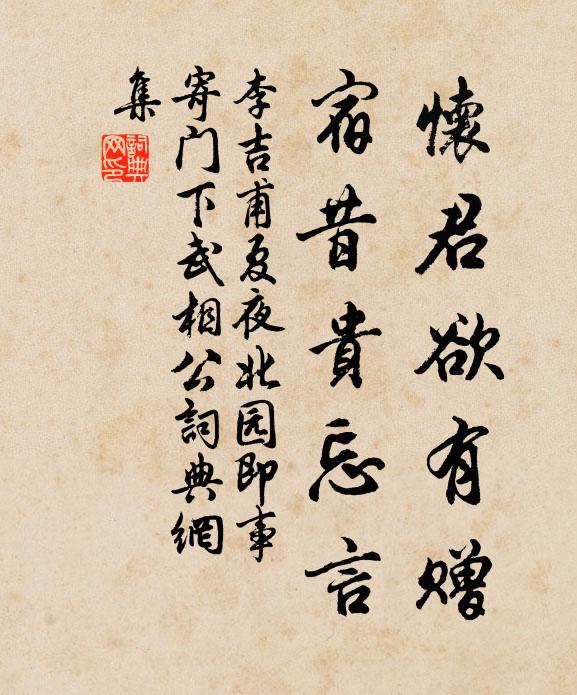 懷君欲有赠
宿昔貴忘言
李吉甫夏夜北园即事
寄门下武相公詞典網
集
詞典
网印